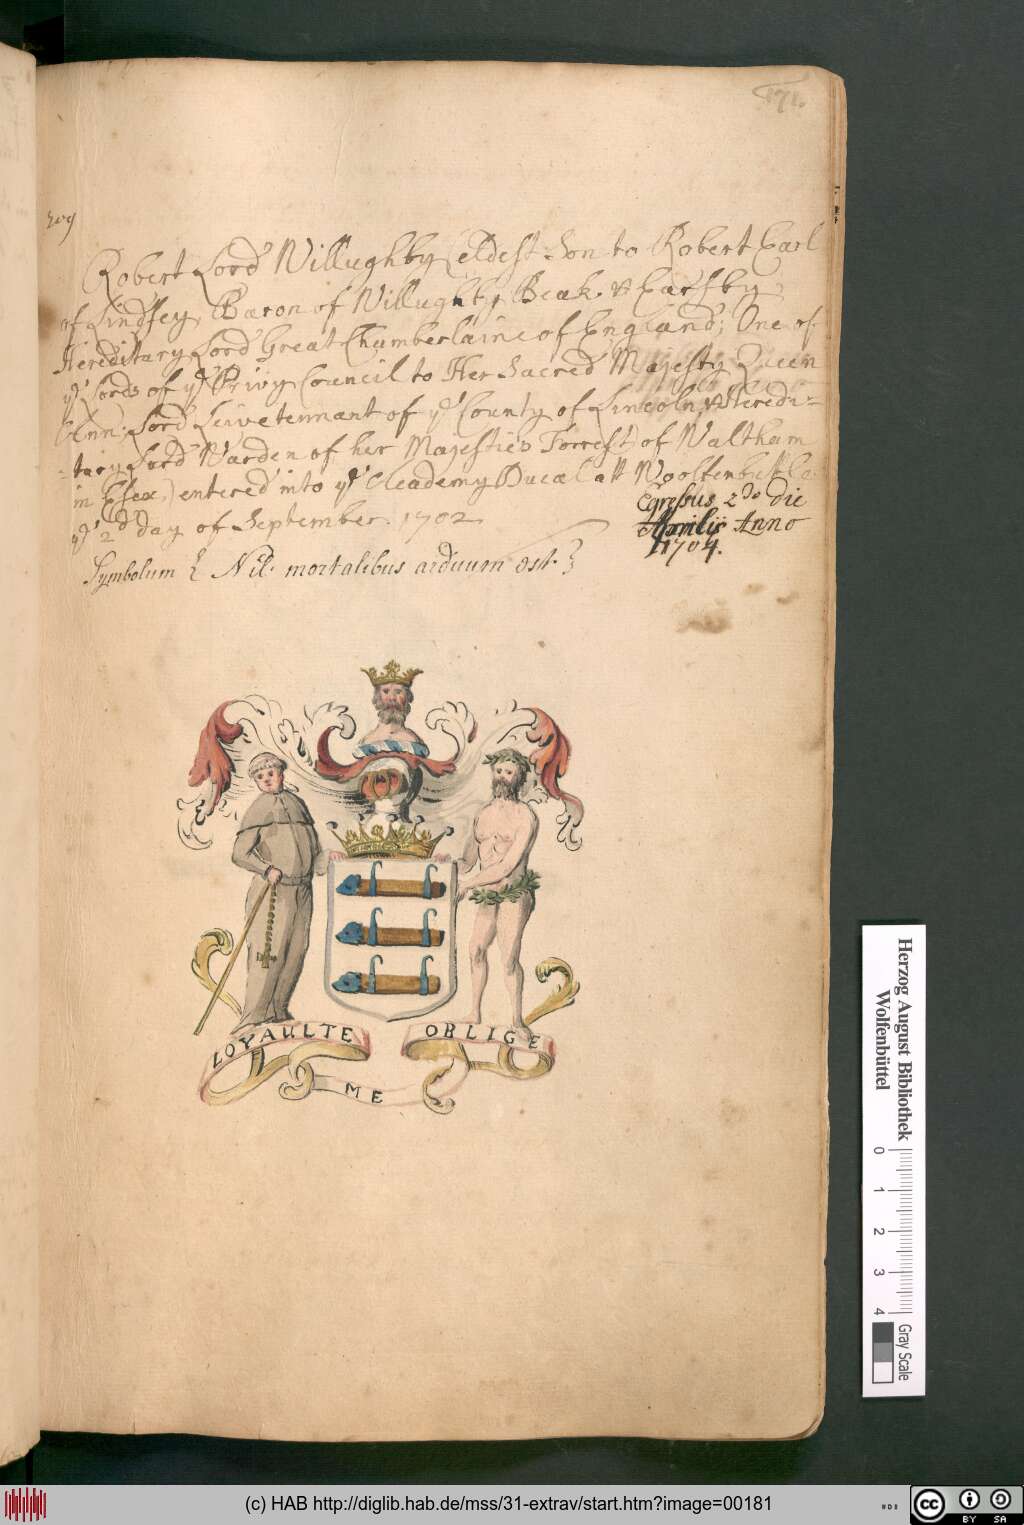 171.
309
Robert Lord Willughby (eldest Son to Robert Earl
of Lindsey, Baron of Willughby, Beak, & Earsby,
Hereditary Lord Great Chamberlaine of England; One of
yᵉ Lords of yᵉ Privy Council to Her Sacred Majesty Queen
Ann; Lord Leivetennant of yᵉ County of Lincoln, & Heredi=
=tary Lord Warden of her Majesties Forrest of Waltham
in Essex,) entered into yᵉ Academy Ducal att
yᵉ 2ᵈ day of September. 1702
Egressus 2do die
Aprilis Anno
1704.
Symbolum { Nil mortalibus arduum est. }
LOYAULTE ME OBLIGE
Herzog August Bibliothek
Wolfenbüttel
0 1 2 3 4
Gray Scale
(c) HAB http://diglib.hab.de/mss/31-extrav/start.htm?image=00181
cc BY SA